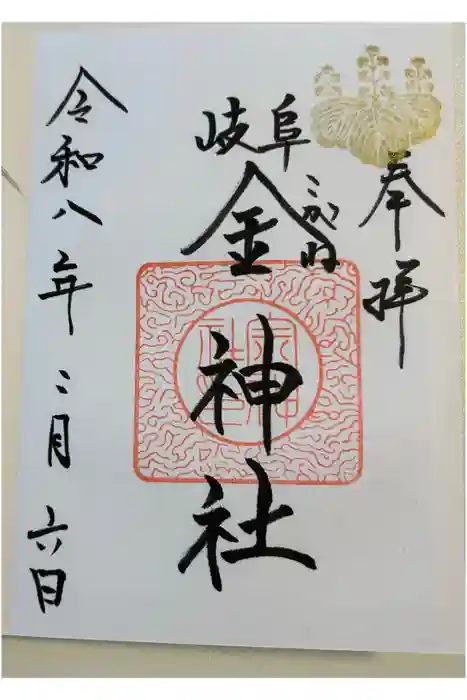 奉拝
岐阜
こがね
金神社
令和八年二月六日